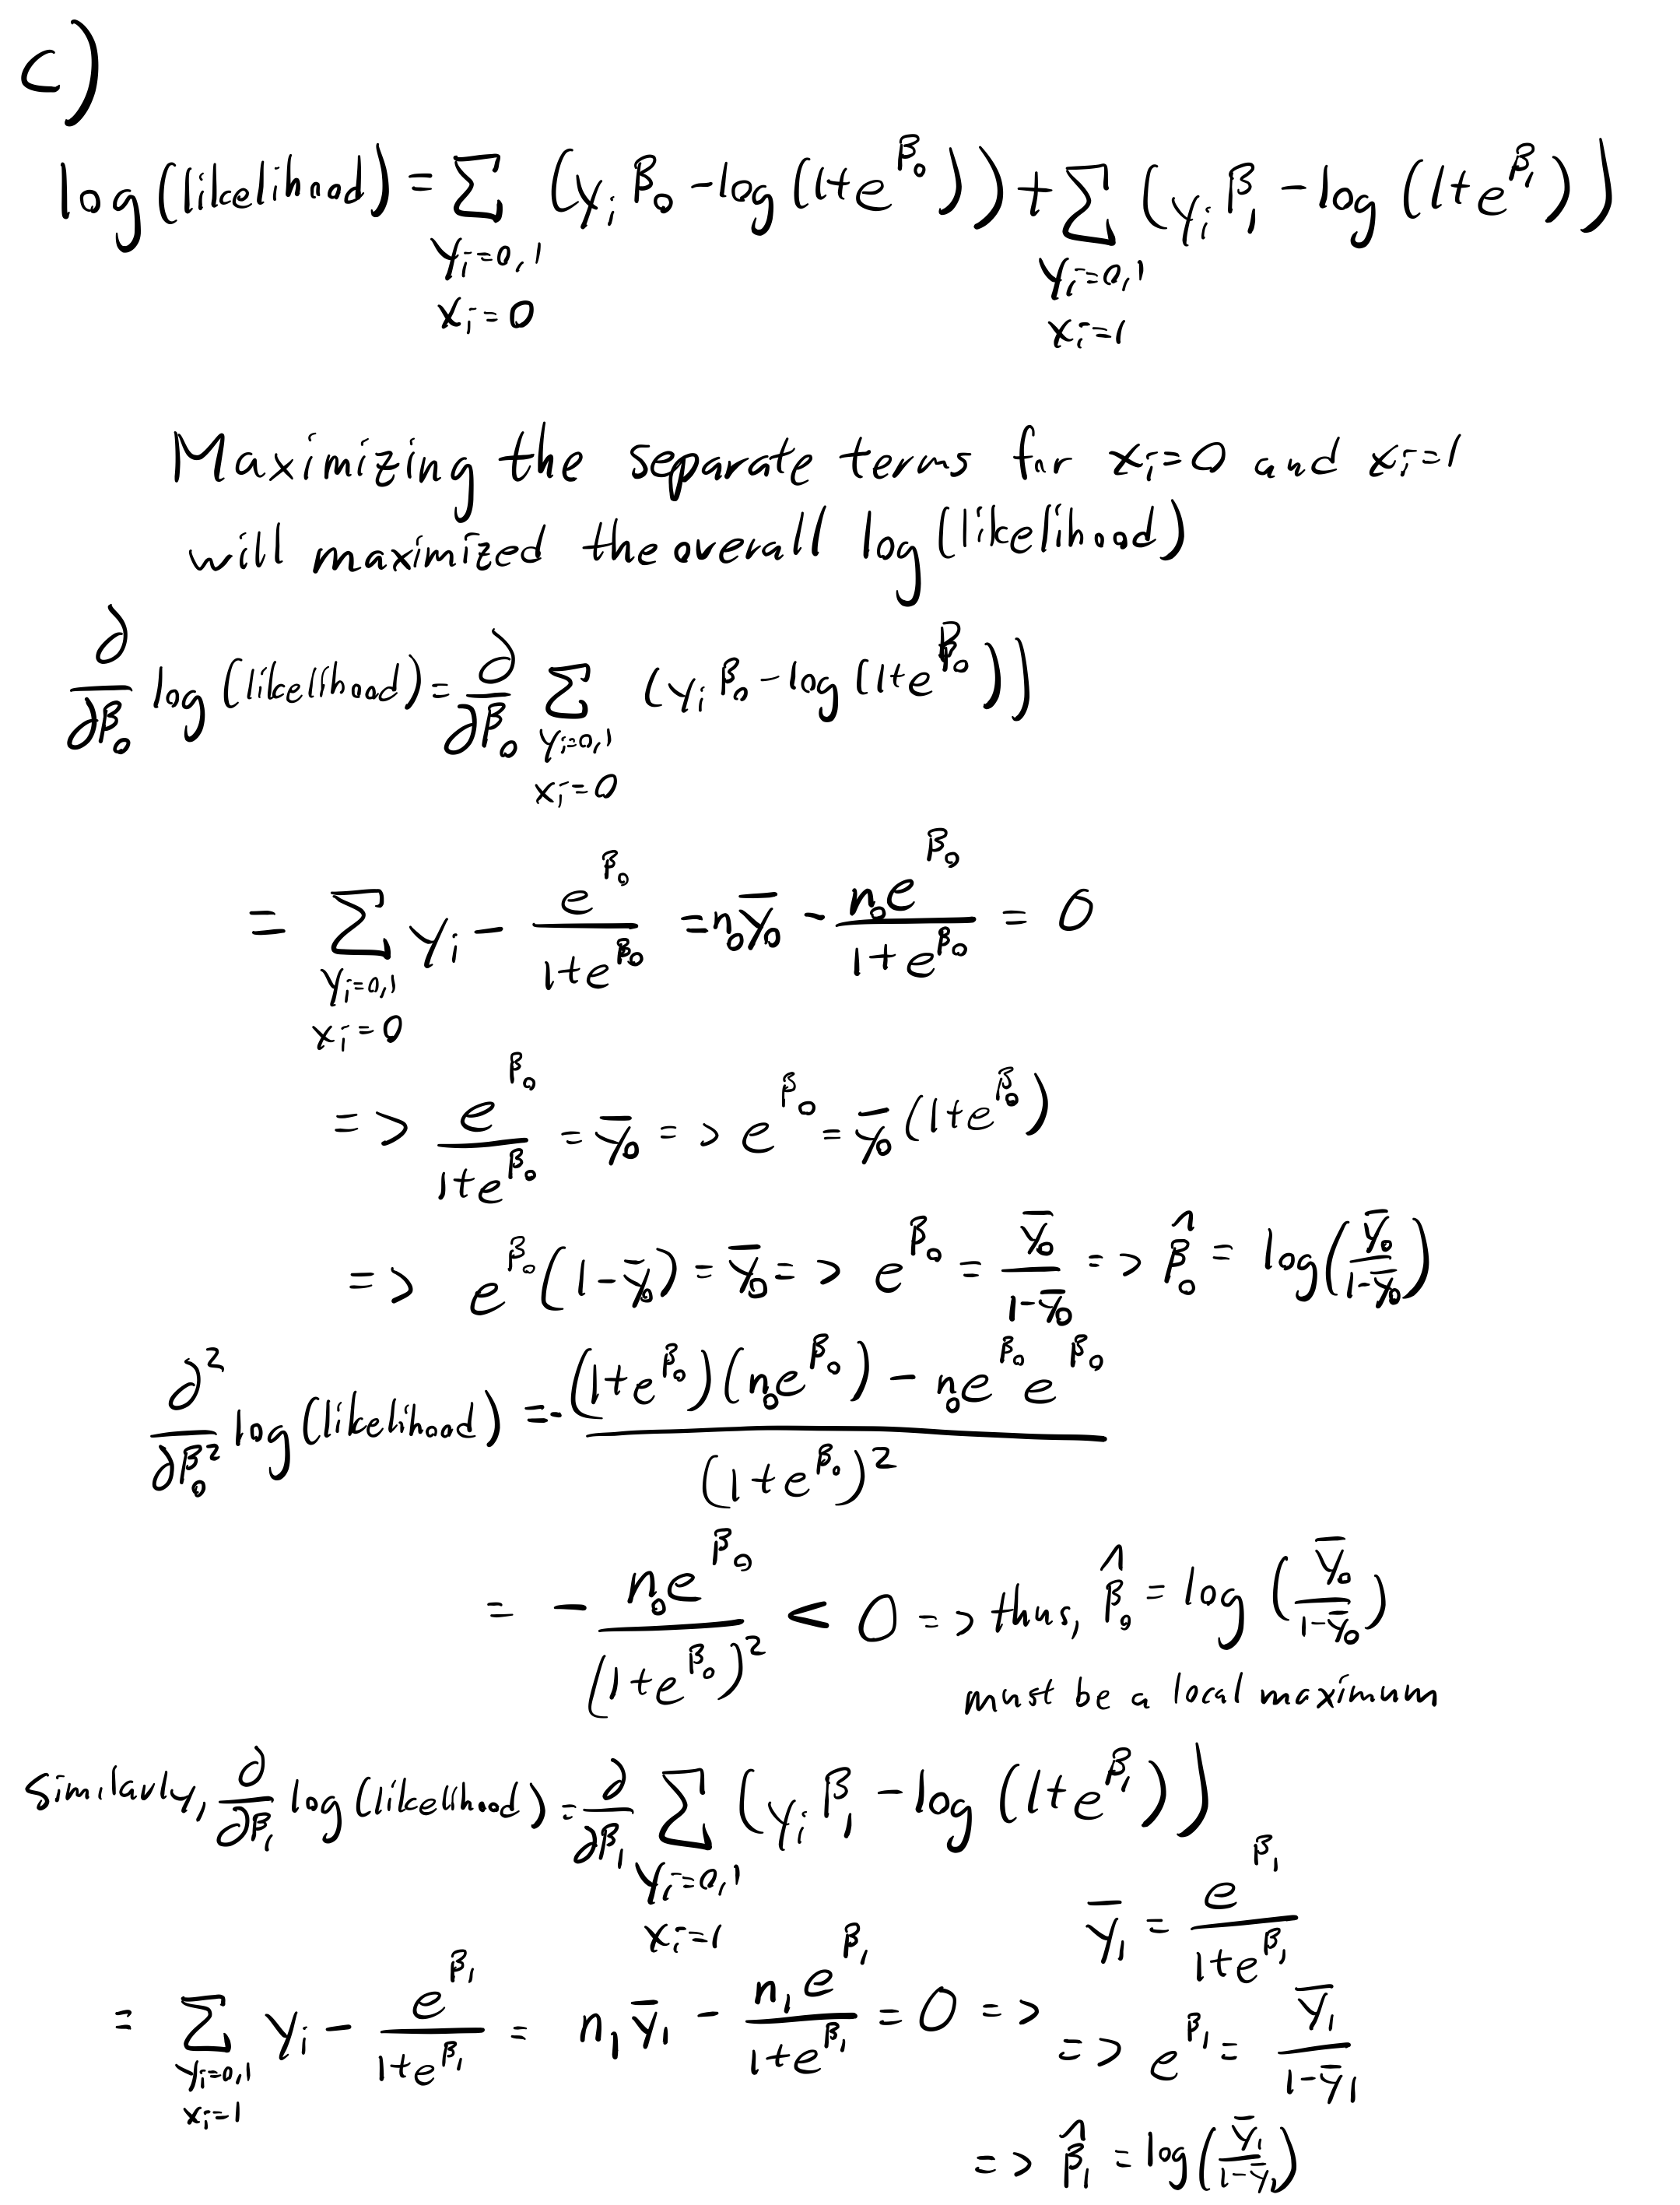 c)
log(likelihood) = Σ_{y_i=0,1 x_i=0} (y_i β_0 - log(1+e^{β_0})) + Σ_{y_i=0,1 x_i=1} (y_i β_1 - log(1+e^{β_1}))
Maximizing the separate terms for x_i=0 and x_i=1
will maximized the overall log(likelihood)
∂/∂β_0 log(likelihood) = ∂/∂β_0 Σ_{y_i=0,1 x_i=0} (y_i β_0 - log(1+e^{β_0}))
= Σ_{y_i=0,1 x_i=0} y_i - e^{β_0}/(1+e^{β_0}) = n_0 ȳ_0 - n_0 e^{β_0}/(1+e^{β_0}) = 0
=> e^{β_0}/(1+e^{β_0}) = ȳ_0 => e^{β_0} = ȳ_0 (1+e^{β_0})
=> e^{β_0}(1-ȳ_0) = ȳ_0 => e^{β_0} = ȳ_0/(1-ȳ_0) => β̂_0 = log(ȳ_0/(1-ȳ_0))
∂²/∂β_0² log(likelihood) = - ((1+e^{β_0})(n_0 e^{β_0}) - n_0 e^{β_0} e^{β_0})/(1+e^{β_0})²
= - n_0 e^{β_0}/(1+e^{β_0})² < 0 => thus, β̂_0 = log(ȳ_0/(1-ȳ_0))
must be a local maximum
similarly, ∂/∂β_1 log(likelihood) = ∂/∂β_1 Σ_{y_i=0,1 x_i=1} (y_i β_1 - log(1+e^{β_1}))
= Σ_{y_i=0,1 x_i=1} y_i - e^{β_1}/(1+e^{β_1}) = n_1 ȳ_1 - n_1 e^{β_1}/(1+e^{β_1}) = 0 =>
ȳ_1 = e^{β_1}/(1+e^{β_1})
=> e^{β_1} = ȳ_1/(1-ȳ_1)
=> β̂_1 = log(ȳ_1/(1-ȳ_1))